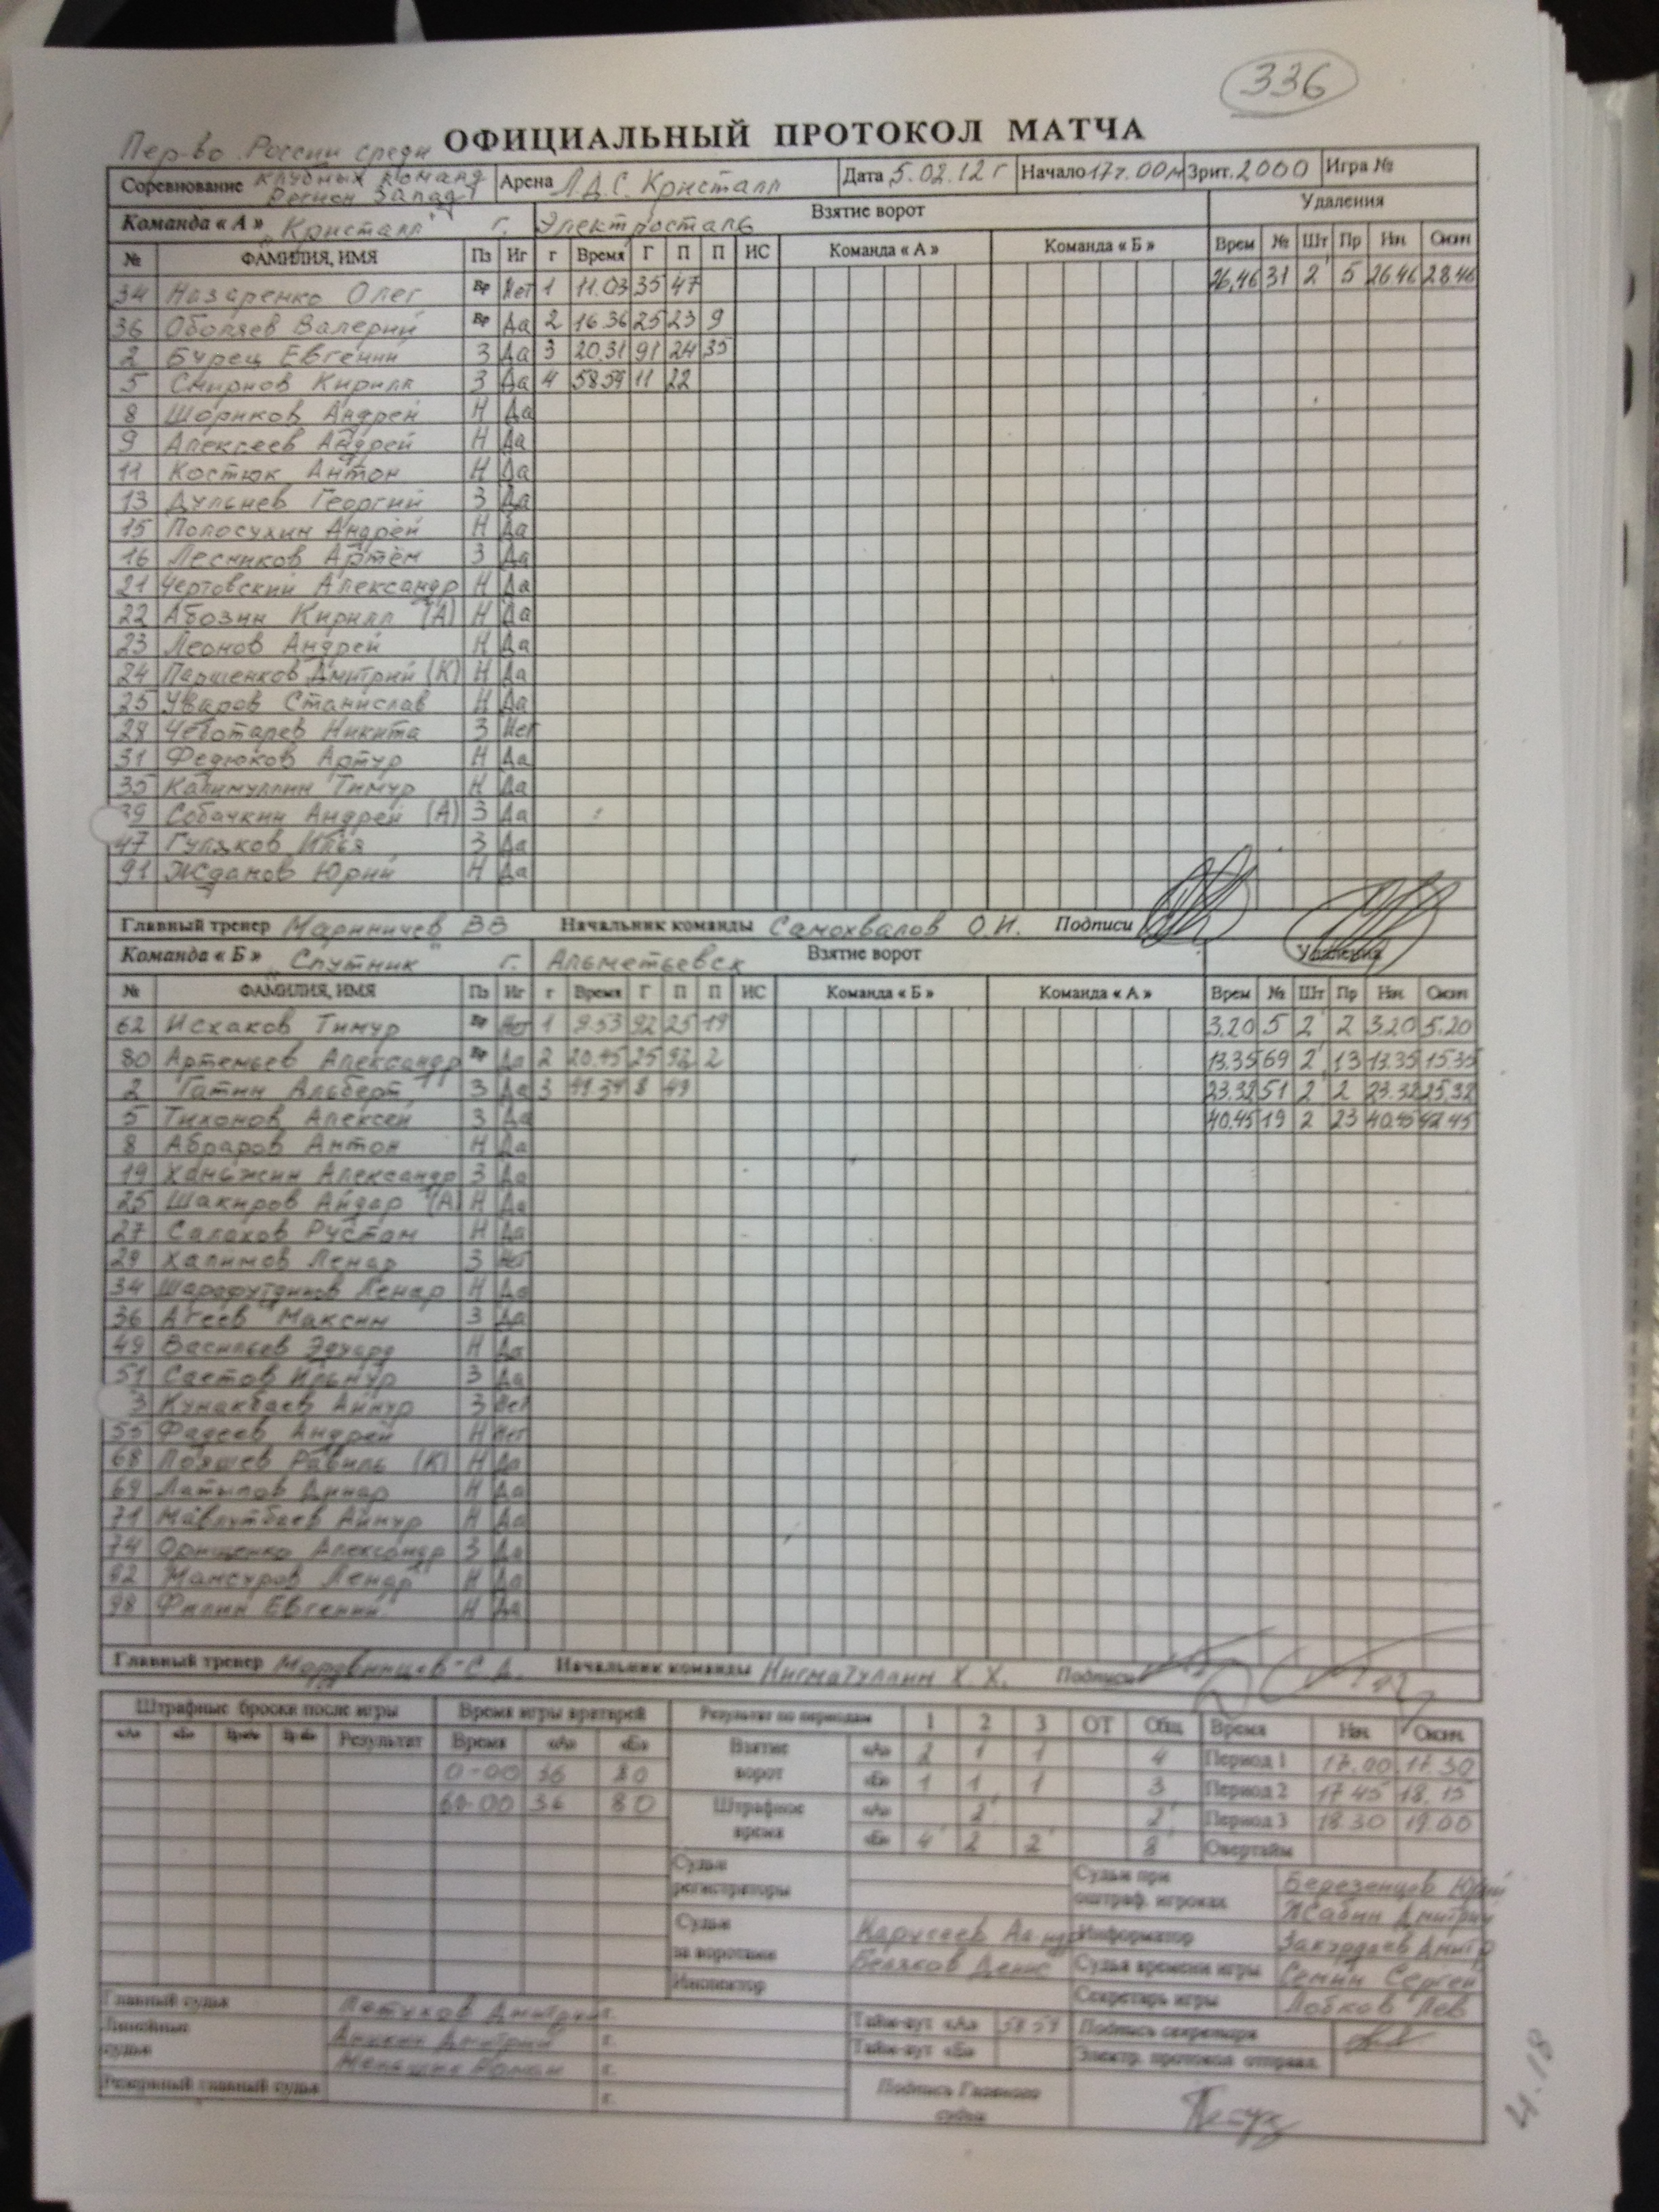 336
ОФИЦИАЛЬНЫЙ ПРОТОКОЛ МАТЧА
Пер-во России среди
Соревнование клубных команд Регион Запад Арена Л.Д.С. Кристалл Дата 5.02.12 г Начало 17ч.00м Зрит. 2000 Игра №
Команда « А » "Кристалл" г. Электросталь Взятие ворот Удаления
№ ФАМИЛИЯ, ИМЯ Пз Иг г Время Г П П ИС Команда « А » Команда « Б » Врем № Шт Пр Нач Оконч
34 Назаренко Олег Вр Нет 1 11.03 35 47 26.46 31 2' 5 26.46 28.46
36 Оболяев Валерий Вр Да 2 16.36 25 23 9
2 Бурец Евгений З Да 3 20.31 91 24 35
5 Смирнов Кирилл З Да 4 58.59 11 22
8 Шориков Андрей Н Да
9 Алексеев Андрей Н Да
11 Костюк Антон Н Да
13 Дульнев Георгий З Да
15 Полосухин Андрей Н Да
16 Лесников Артём З Да
21 Чертовский Александр Н Да
22 Абозин Кирилл (А) Н Да
23 Леонов Андрей Н Да
24 Паршенков Дмитрий (К) Н Да
25 Уваров Станислав Н Да
28 Чеботарев Никита З Нет
31 Федюков Артур Н Да
35 Калимуллин Тимур Н Да
39 Собачкин Андрей (А) З Да
47 Гуляков Илья З Да
91 Жданов Юрий Н Да
Главный тренер Мариничев ВВ Начальник команды Самохвалов О.И. Подписи
Команда « Б » "Спутник" г. Альметьевск Взятие ворот Удаления
№ ФАМИЛИЯ, ИМЯ Пз Иг г Время Г П П ИС Команда « Б » Команда « А » Врем № Шт Пр Нач Оконч
62 Исхаков Тимур Вр Нет 1 9.53 92 25 19 3.20 5 2' 2 3.20 5.20
80 Артемьев Александр Вр Да 2 20.45 25 92 2 13.35 69 2' 13 13.35 15.35
2 Гатин Альберт З Да 3 49.39 8 49 23.32 51 2' 2 23.32 25.32
5 Тихонов Алексей З Да 40.45 19 2 23 40.45 42.45
8 Абраров Антон Н Да
19 Ханьжин Александр З Да
25 Шакиров Айдар (А) Н Да
27 Салахов Рустам Н Да
29 Халимов Ленар З Нет
34 Шарафутдинов Ленар Н Да
36 Агеев Максим З Да
49 Васильев Эдуард Н Да
51 Саетов Ильнур З Да
3 Кунакбаев Айнур З Нет
55 Фадеев Андрей Н Нет
68 Лояшев Равиль (К) Н Да
69 Латыпов Динар Н Да
71 Мавлутбаев Айнур Н Да
74 Орищенко Александр З Да
92 Мансуров Ленар Н Да
98 Филин Евгений Н Да
Главный тренер С.А. Начальник команды Нигматуллин Х.Х. Подписи
Штрафные броски после игры Время игры вратарей Результат по периодам 1 2 3 ОТ Общ Время Нач. Оконч.
«А» «Б» Вр«А» Вр«Б» Результат Время «А» «Б» Взятие ворот «А» 2 1 1 4 Период 1 17.00 17.30
0-00 36 80 «Б» 1 1 1 3 Период 2 17.45 18.15
60-00 36 80 Штрафное время «А» 2' 2' Период 3 18.30 19.00
«Б» 4' 2 2' 8' Овертайм
Судьи регистраторы Судьи при оштраф. игроках Березенцев Юрий
Жабин Дмитрий
Судьи за воротами Информатор Дмитр
Беляков Денис Судья времени игры Семин Сергей
Инспектор Секретарь игры Лобков Лев
Главный судья Петухов Дмитрий г. Тайм-аут «А» 58.59 Подпись секретаря
Линейные судьи Дмитрий г. Тайм-аут «Б» Электр. протокол отправл.
Роман г.
Резервный главный судья г. Подпись Главного судьи
4.18